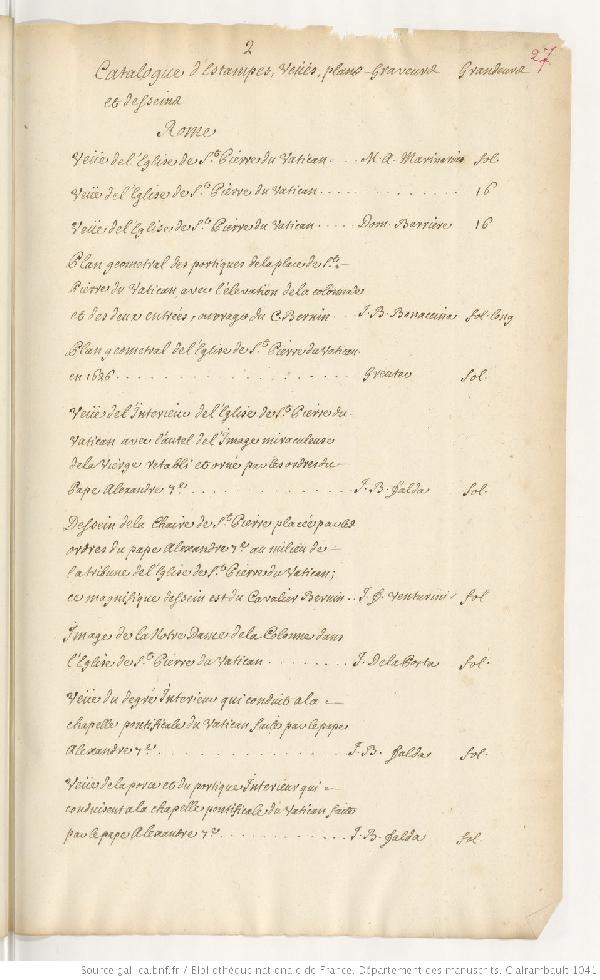 2
27
Catalogue d'Estampes, Veües, plans Graveurs Grandeurs
et desseins
Rome
Veüe de l'Eglise de St. Pierre du Vatican ... M. A. Marinarius fol.
Veüe de l'Eglise de St. Pierre du Vatican ............ 16
Veüe de l'Eglise de St. Pierre du Vatican .... Dom. Barriere 16
Plan geometral des portiques de la place de St. –
Pierre du Vatican avec l'élevation de la colonnade
et des deux entrées, ouvrage du C. Bernin ... J. B. Bonacina fol. long
Plan geometral de l'Eglise de St. Pierre du Vatican
en 1626 .................. Greuter fol.
Veüe de l'Interieur de l'Eglise de St. Pierre du
Vatican avec l'autel de l'Image miraculeuse
de la Vierge retabli et orné par les ordres du –
Pape Alexandre 7e. ............ J. B. falda fol.
Dessein de la Chaire de St. Pierre placée par les
ordres du pape Alexandre 7e au milieu de –
la tribune de l'Eglise de St. Pierre du Vatican;
ce magnifique dessein est du Cavalier Bernin .. J. F. Venturini fol
Image de la Notre Dame de la Colonne dans
l'Eglise de St. Pierre du Vatican ........ J. De la Porta fol.
Veüe du degré Interieur qui conduit a la –
chapelle pontificale du Vatican faite par le pape
Alexandre 7e. .............. J. B. falda fol.
Veüe de la porte et du portique Interieur qui –
conduisent a la chapelle pontificale du Vatican faite
par le pape Alexandre 7e. .......... J. B. falda fol.
Source gallica.bnf.fr / Bibliothèque nationale de France. Département des manuscrits. Clairambault 1041